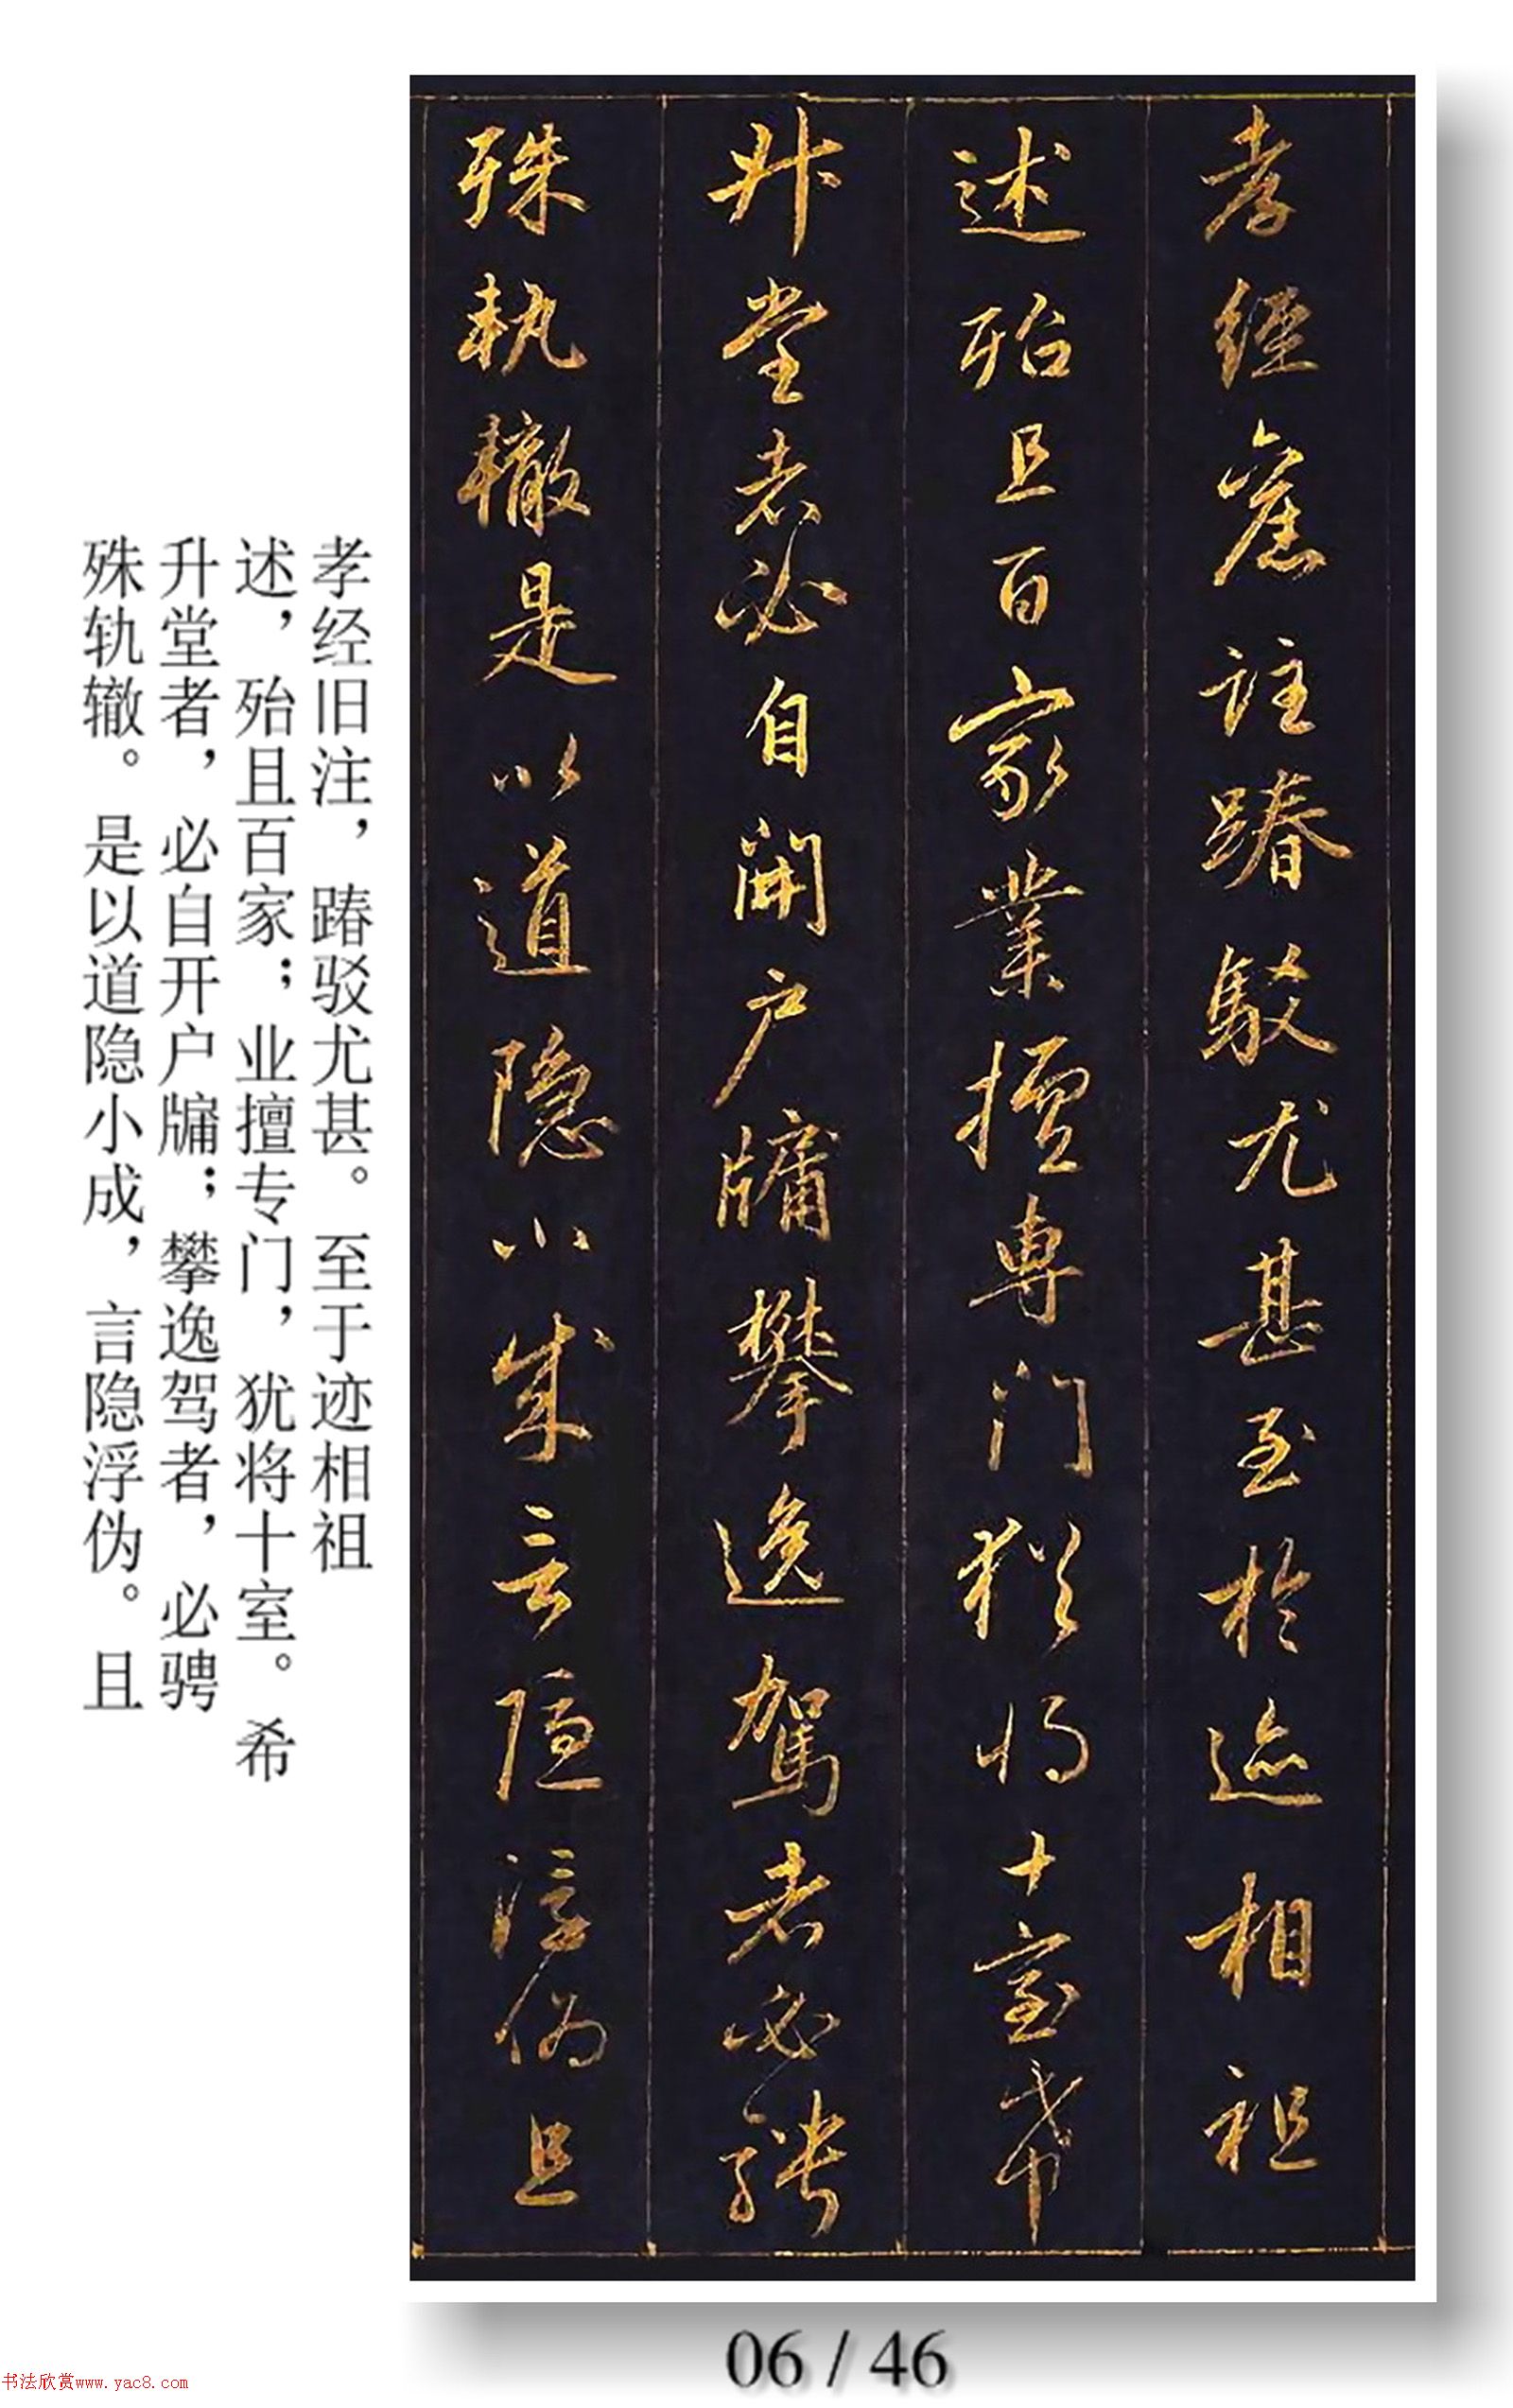 孝經舊註踳駁尤甚至於迹相祖
述殆且百家業擅專門猶將十室希
升堂者必自開户牖攀逸駕者必騁
殊軌轍是以道隐小成言隐浮偽且
孝经旧注，踳驳尤甚。至于迹相祖
述，殆且百家；业擅专门，犹将十室。希
升堂者，必自开户牖；攀逸驾者，必骋
殊轨辙。是以道隐小成，言隐浮伪。且
06 / 46
书法欣赏www.yac8.com